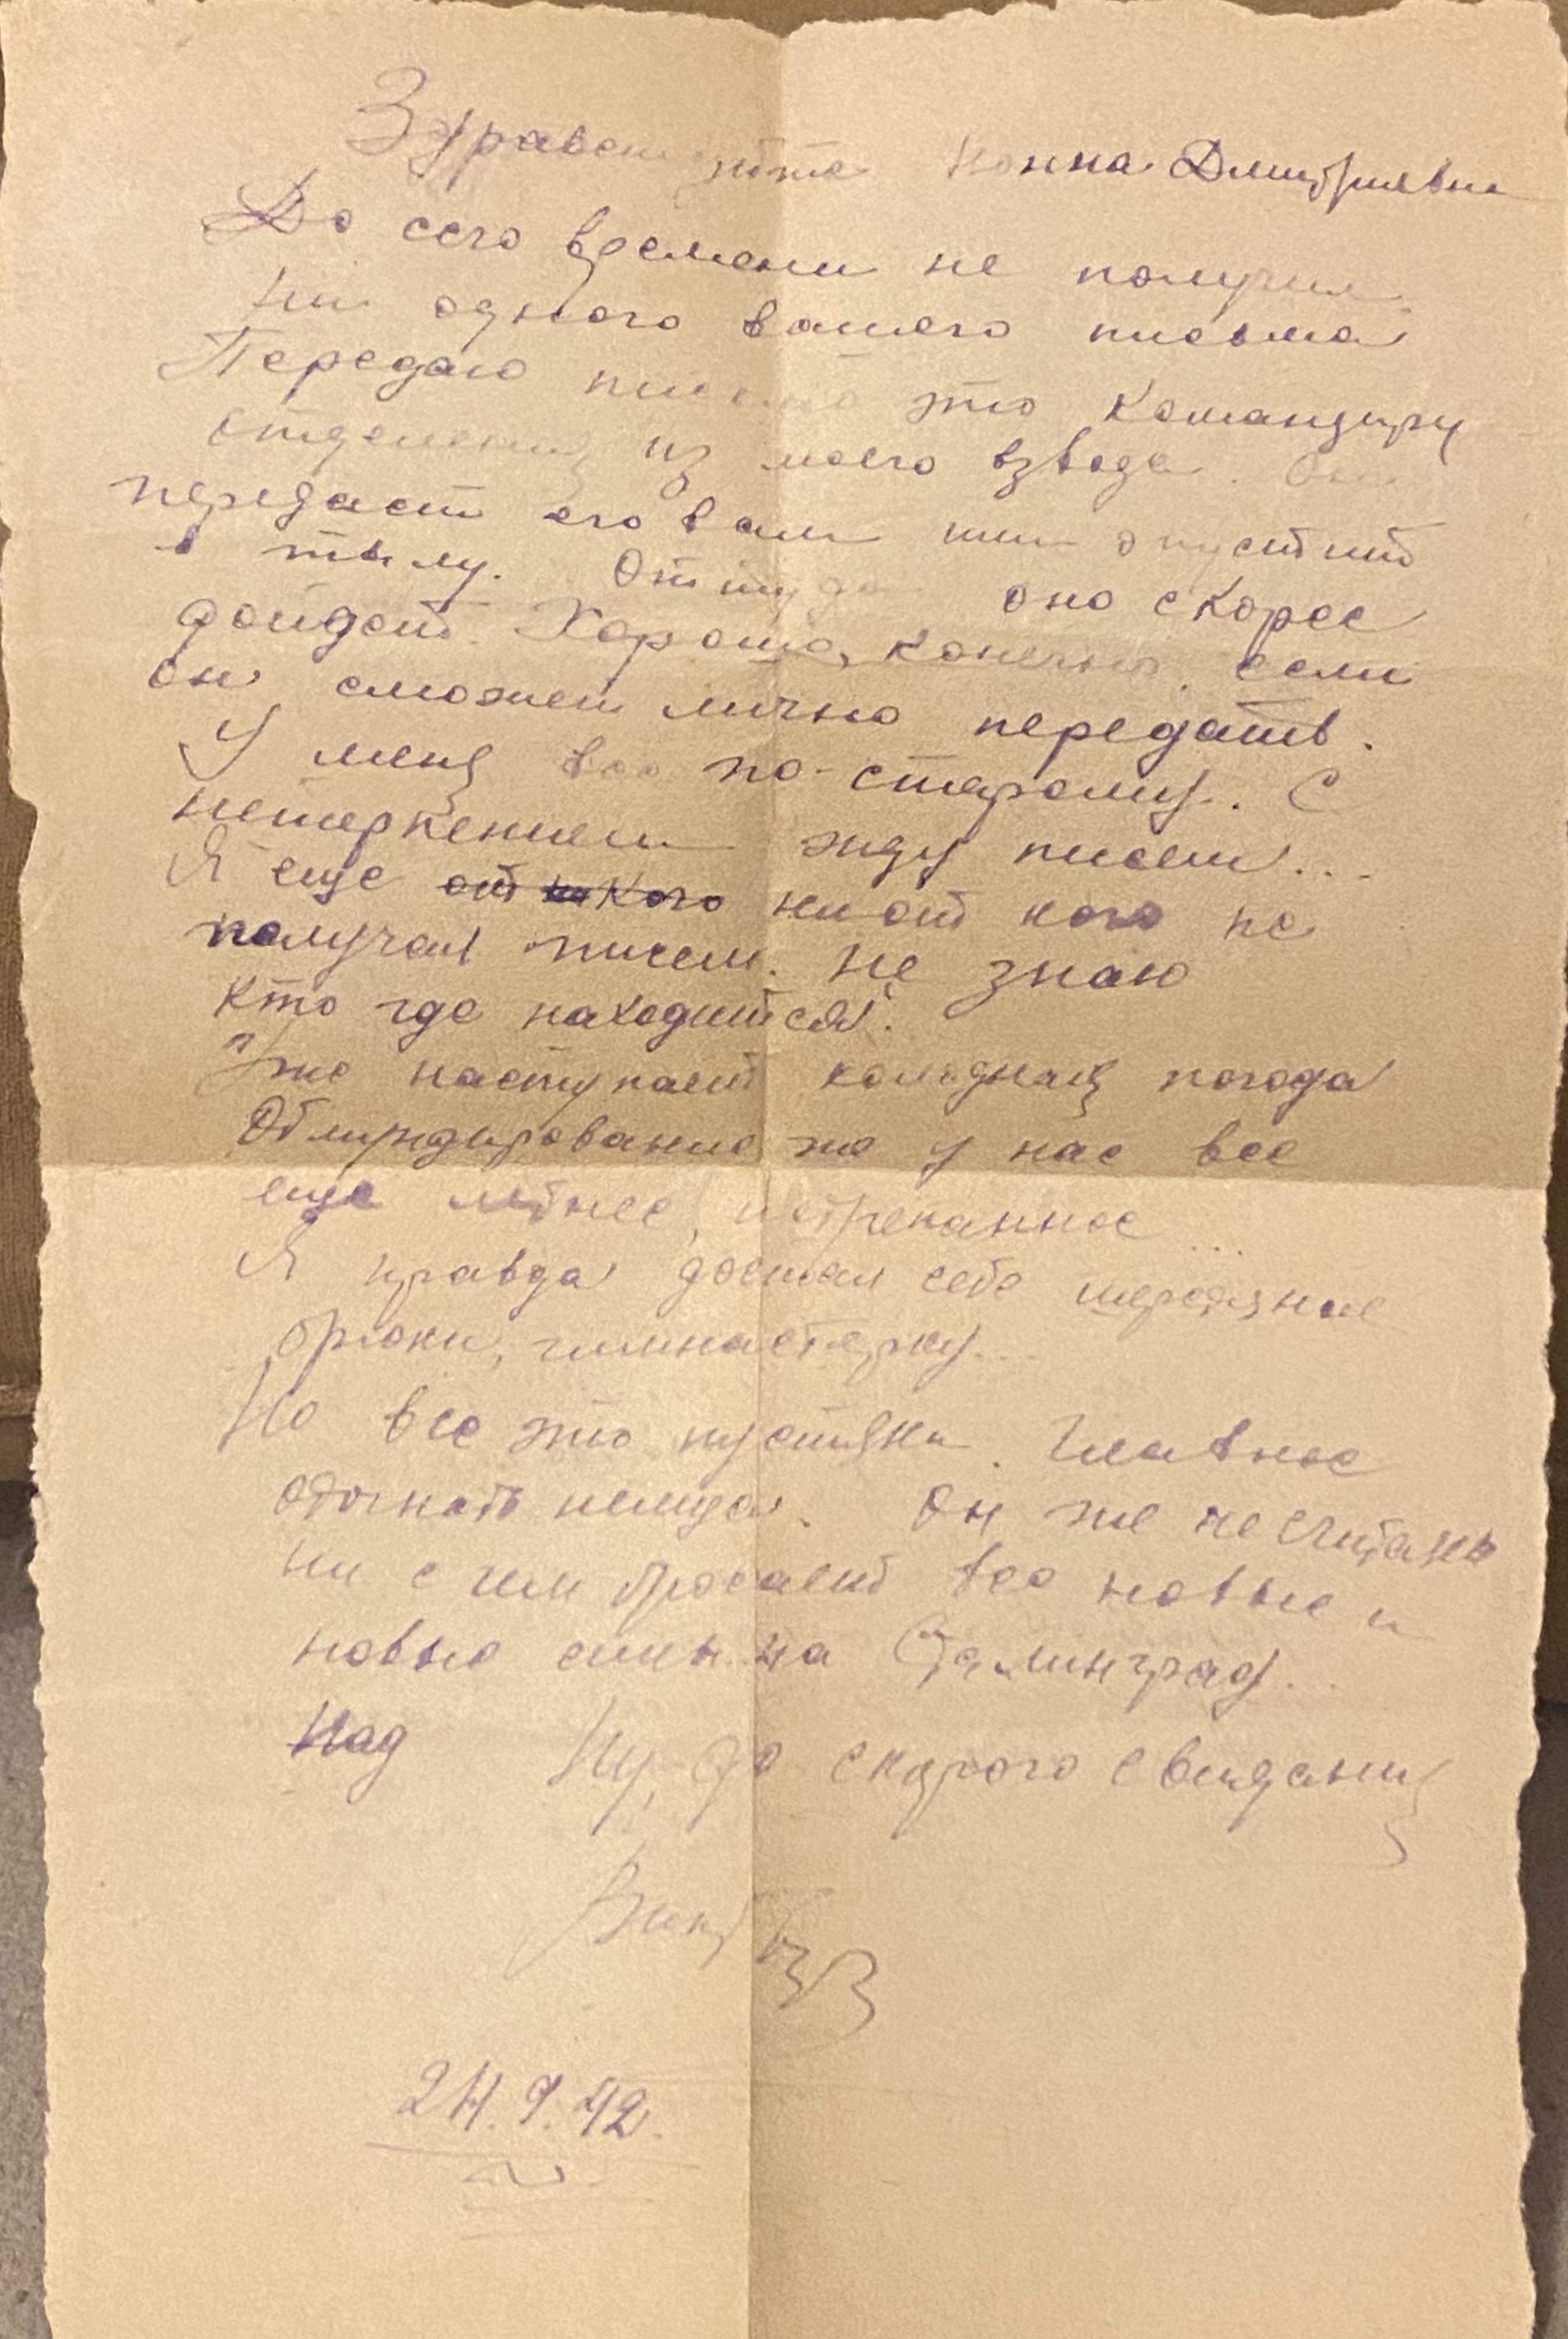 Здравствуйте Нонна Дмитриевна
До сего времени не получил
ни одного вашего письма
Передаю письмо это командиру
отделения из моего взвода. Он
передаст его вам или опустит
в тылу. Оттуда оно скорее
дойдет. Хорошо, конечно, если
он сможет лично передать.
У меня все по-старому. С
нетерпением жду писем...
Я еще от ни кого ни от кого не
получал писем. Не знаю
кто где находится.
Уже наступает холодная погода
Обмундирование же у нас все
еще летнее, потрепанное...
Я правда достал себе шерстяные
брюки, гимнастерку...
Но все это пустяки. Главное
отогнать немца. Он же не считаясь
ни с чем бросает все новые и
новые силы на Сталинград...
Над Ну, до скорого свидания
24.9.42.